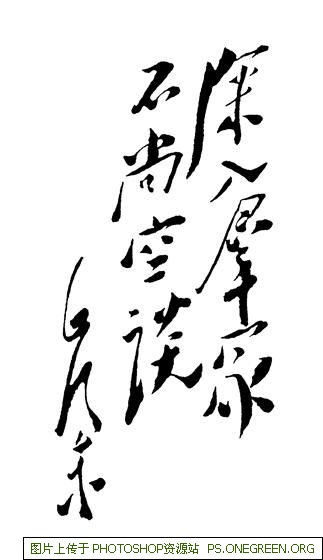 深入群众
不尚空谈
毛泽东
图片上传于 PHOTOSHOP资源站 PS.ONEGREEN.ORG